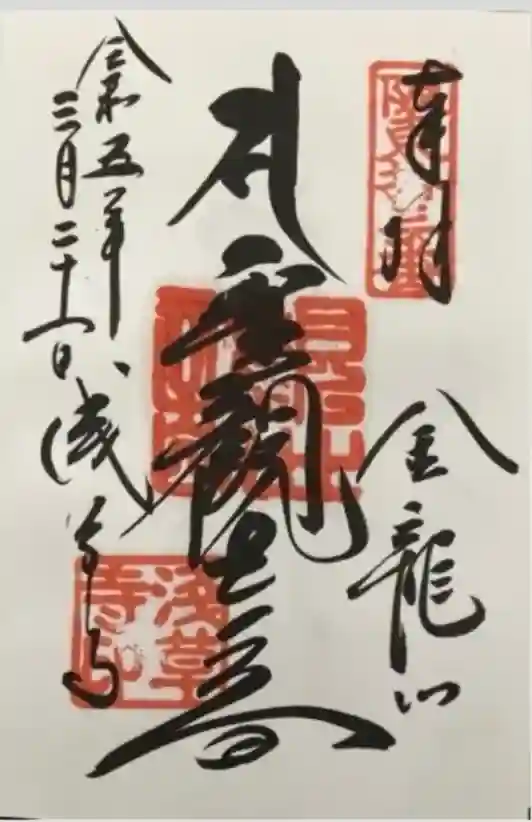 奉拝
金龍山
聖観世音
令和五年
三月二十一日
浅草寺
浅草寺印